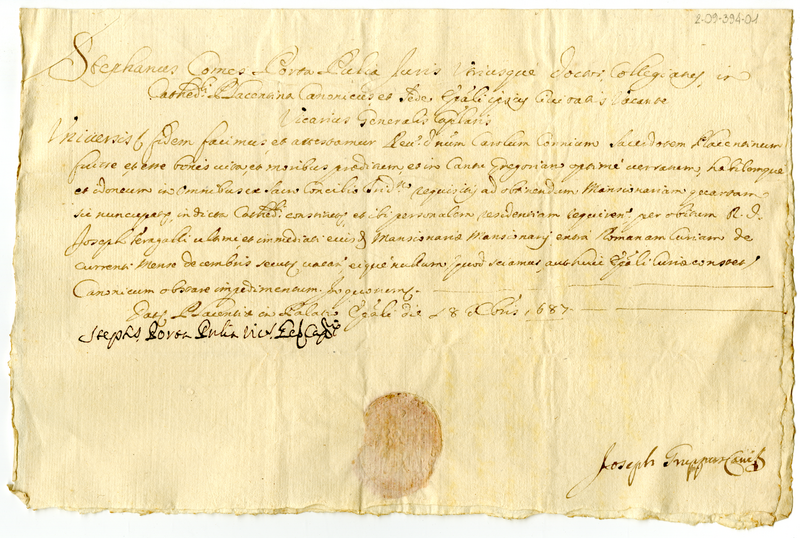 2-09-394-01
Stephanus Comes Porta Pulia Juris Utriusque Doctor Collegiatus, in
Cathedli Placentina Canonicus et Sede Epali ipsius Civitatis Vacante
Vicarius Generalis Caplaris
Universis fidem facimus et attestamur Revm. dnum Carolum Cornium Sacerdotem Placentinum
fuisse, et esse bonis vita, et moribus preditum, et in Cantu Gregoriano optimé versatum, habilemque
et idoneum in Omnibus ex Sacro Concilio Tridno requisitis ad obtinendum Mansionariam quartam
sic nuncupatam in dicta Cathedli constructam et ibi personalem residentiam requirenm per obitum R. D.
Joseph ultimi et immediati eiusd Mansionariæ Mansionarij extra Romanam Curiam de
currenti Mense decembris secutum vacan eique nullum quod sciamus, aut huic Epali Curiæ constet
Canonicum obstare impedimentum. In quorum
Datm Placentiæ in Palatio Epali die 18 Xbris 1687
Stephs Porta Pulia Vics
Joseph